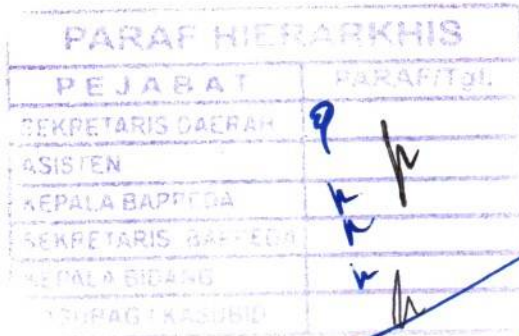 PARAF HIERARKHIS
PEJABAT PARAF/Tgl.
SEKRETARIS DAERAH
ASISTEN
KEPALA BAPPEDA
SEKRETARIS BAPPEDA
KEPALA BIDANG
KASUBAG / KASUBID